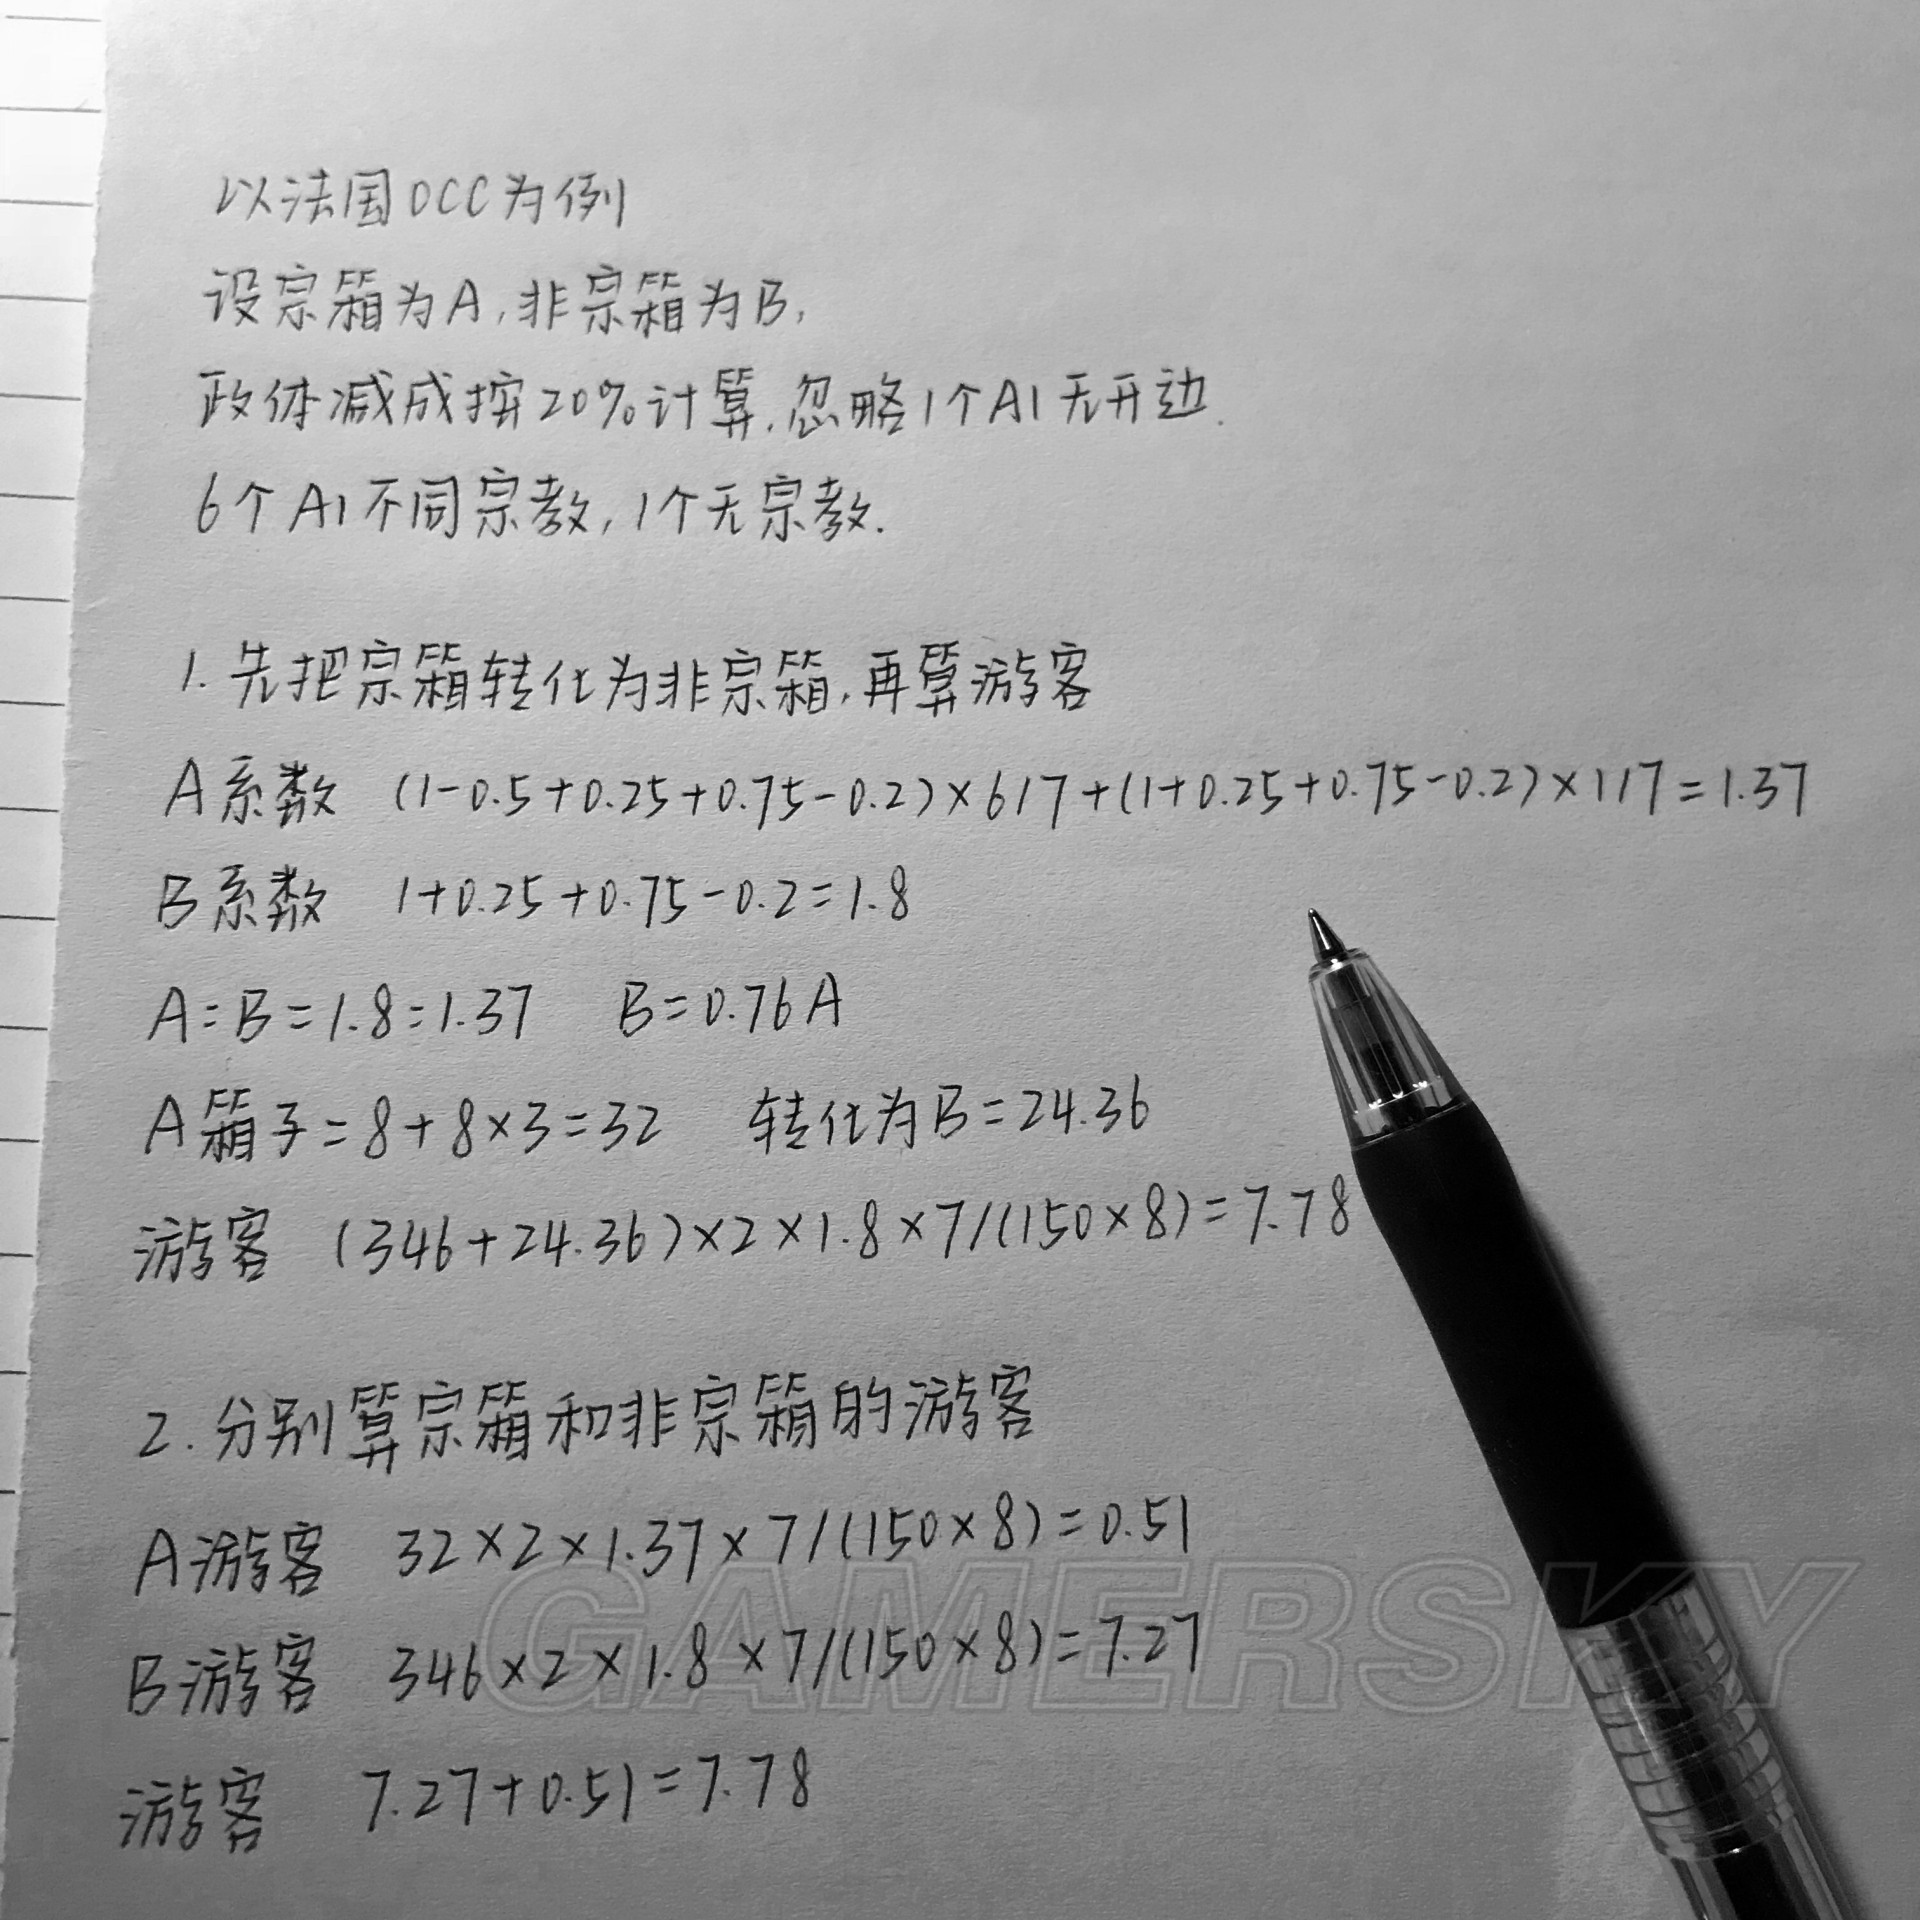 以法国OCC为例
设宗箱为A,非宗箱为B,
政体减成按20%计算.忽略1个AI无开边.
6个AI不同宗教,1个无宗教.
1.先把宗箱转化为非宗箱,再算游客
A系数 (1-0.5+0.25+0.75-0.2)×6/7+(1+0.25+0.75-0.2)×1/7=1.37
B系数 1+0.25+0.75-0.2=1.8
A:B=1.8:1.37 B=0.76A
A箱子=8+8×3=32 转化为B=24.36
游客 (346+24.36)×2×1.8×7/(150×8)=7.78
2.分别算宗箱和非宗箱的游客
A游客 32×2×1.37×7/(150×8)=0.51
B游客 346×2×1.8×7/(150×8)=7.27
游客 7.27+0.51=7.78
GAMERSKY